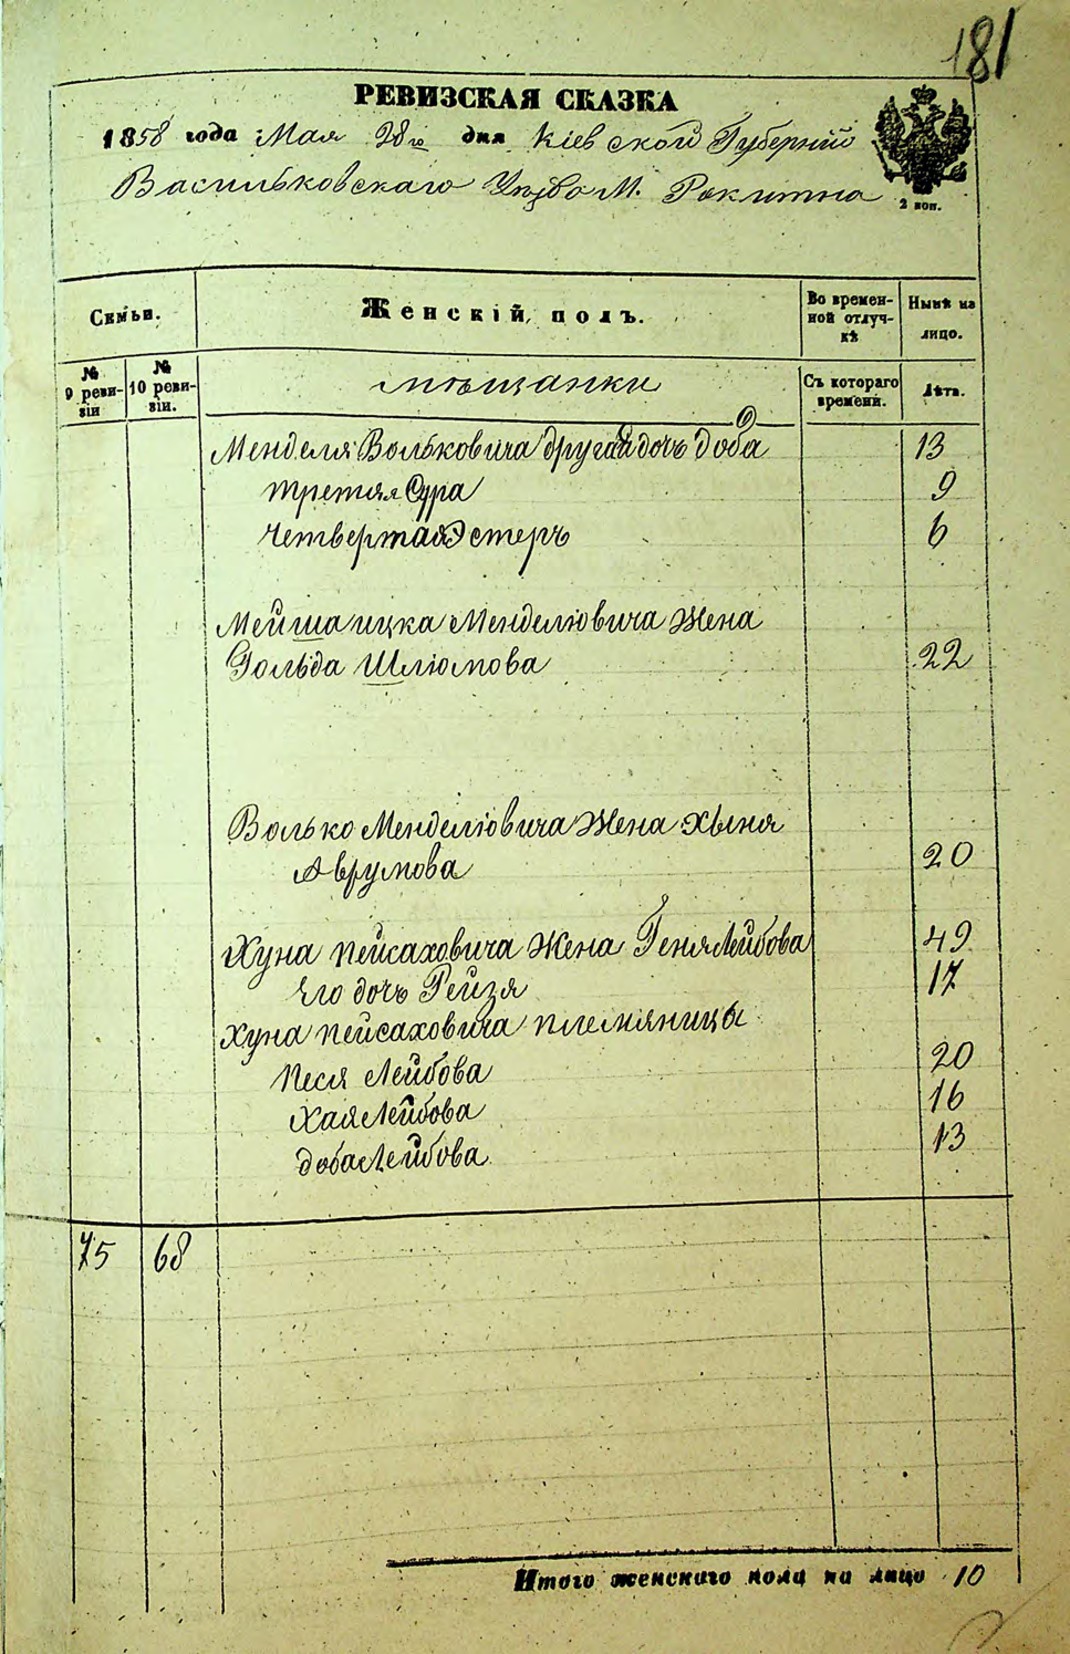 181
РЕВИЗСКАЯ СКАЗКА
1858 года Мая 28го дня Кіевской Губерніи
Васильковскаго Уѣзда М. Ракитна
2 коп.
Семьи.
Женскій полъ.
Во времен-
ной отлуч-
кѣ
Нынѣ на
лицо.
№
9 реви-
зіи
№
10 реви-
зіи.
мѣщанки
Съ котораго
времени.
Лѣта.
Менделя Вольковича другая дочь Доба 13
третяя Сура 9
четвертая Эстеръ 6
Мейша ицка Менделювича Жена
Гольда Шлюмова 22
Волько Менделювича Жена Хыня
Аврумова 20
Хуна Пейсаховича Жена Геня Лейбова 49
Его дочь Рейзя 17
Хуна Пейсаховича племяницы
Песя Лейбова 20
Хая Лейбова 16
Доба Лейбова 13
75 68
Итого женскаго пола на лицо 10